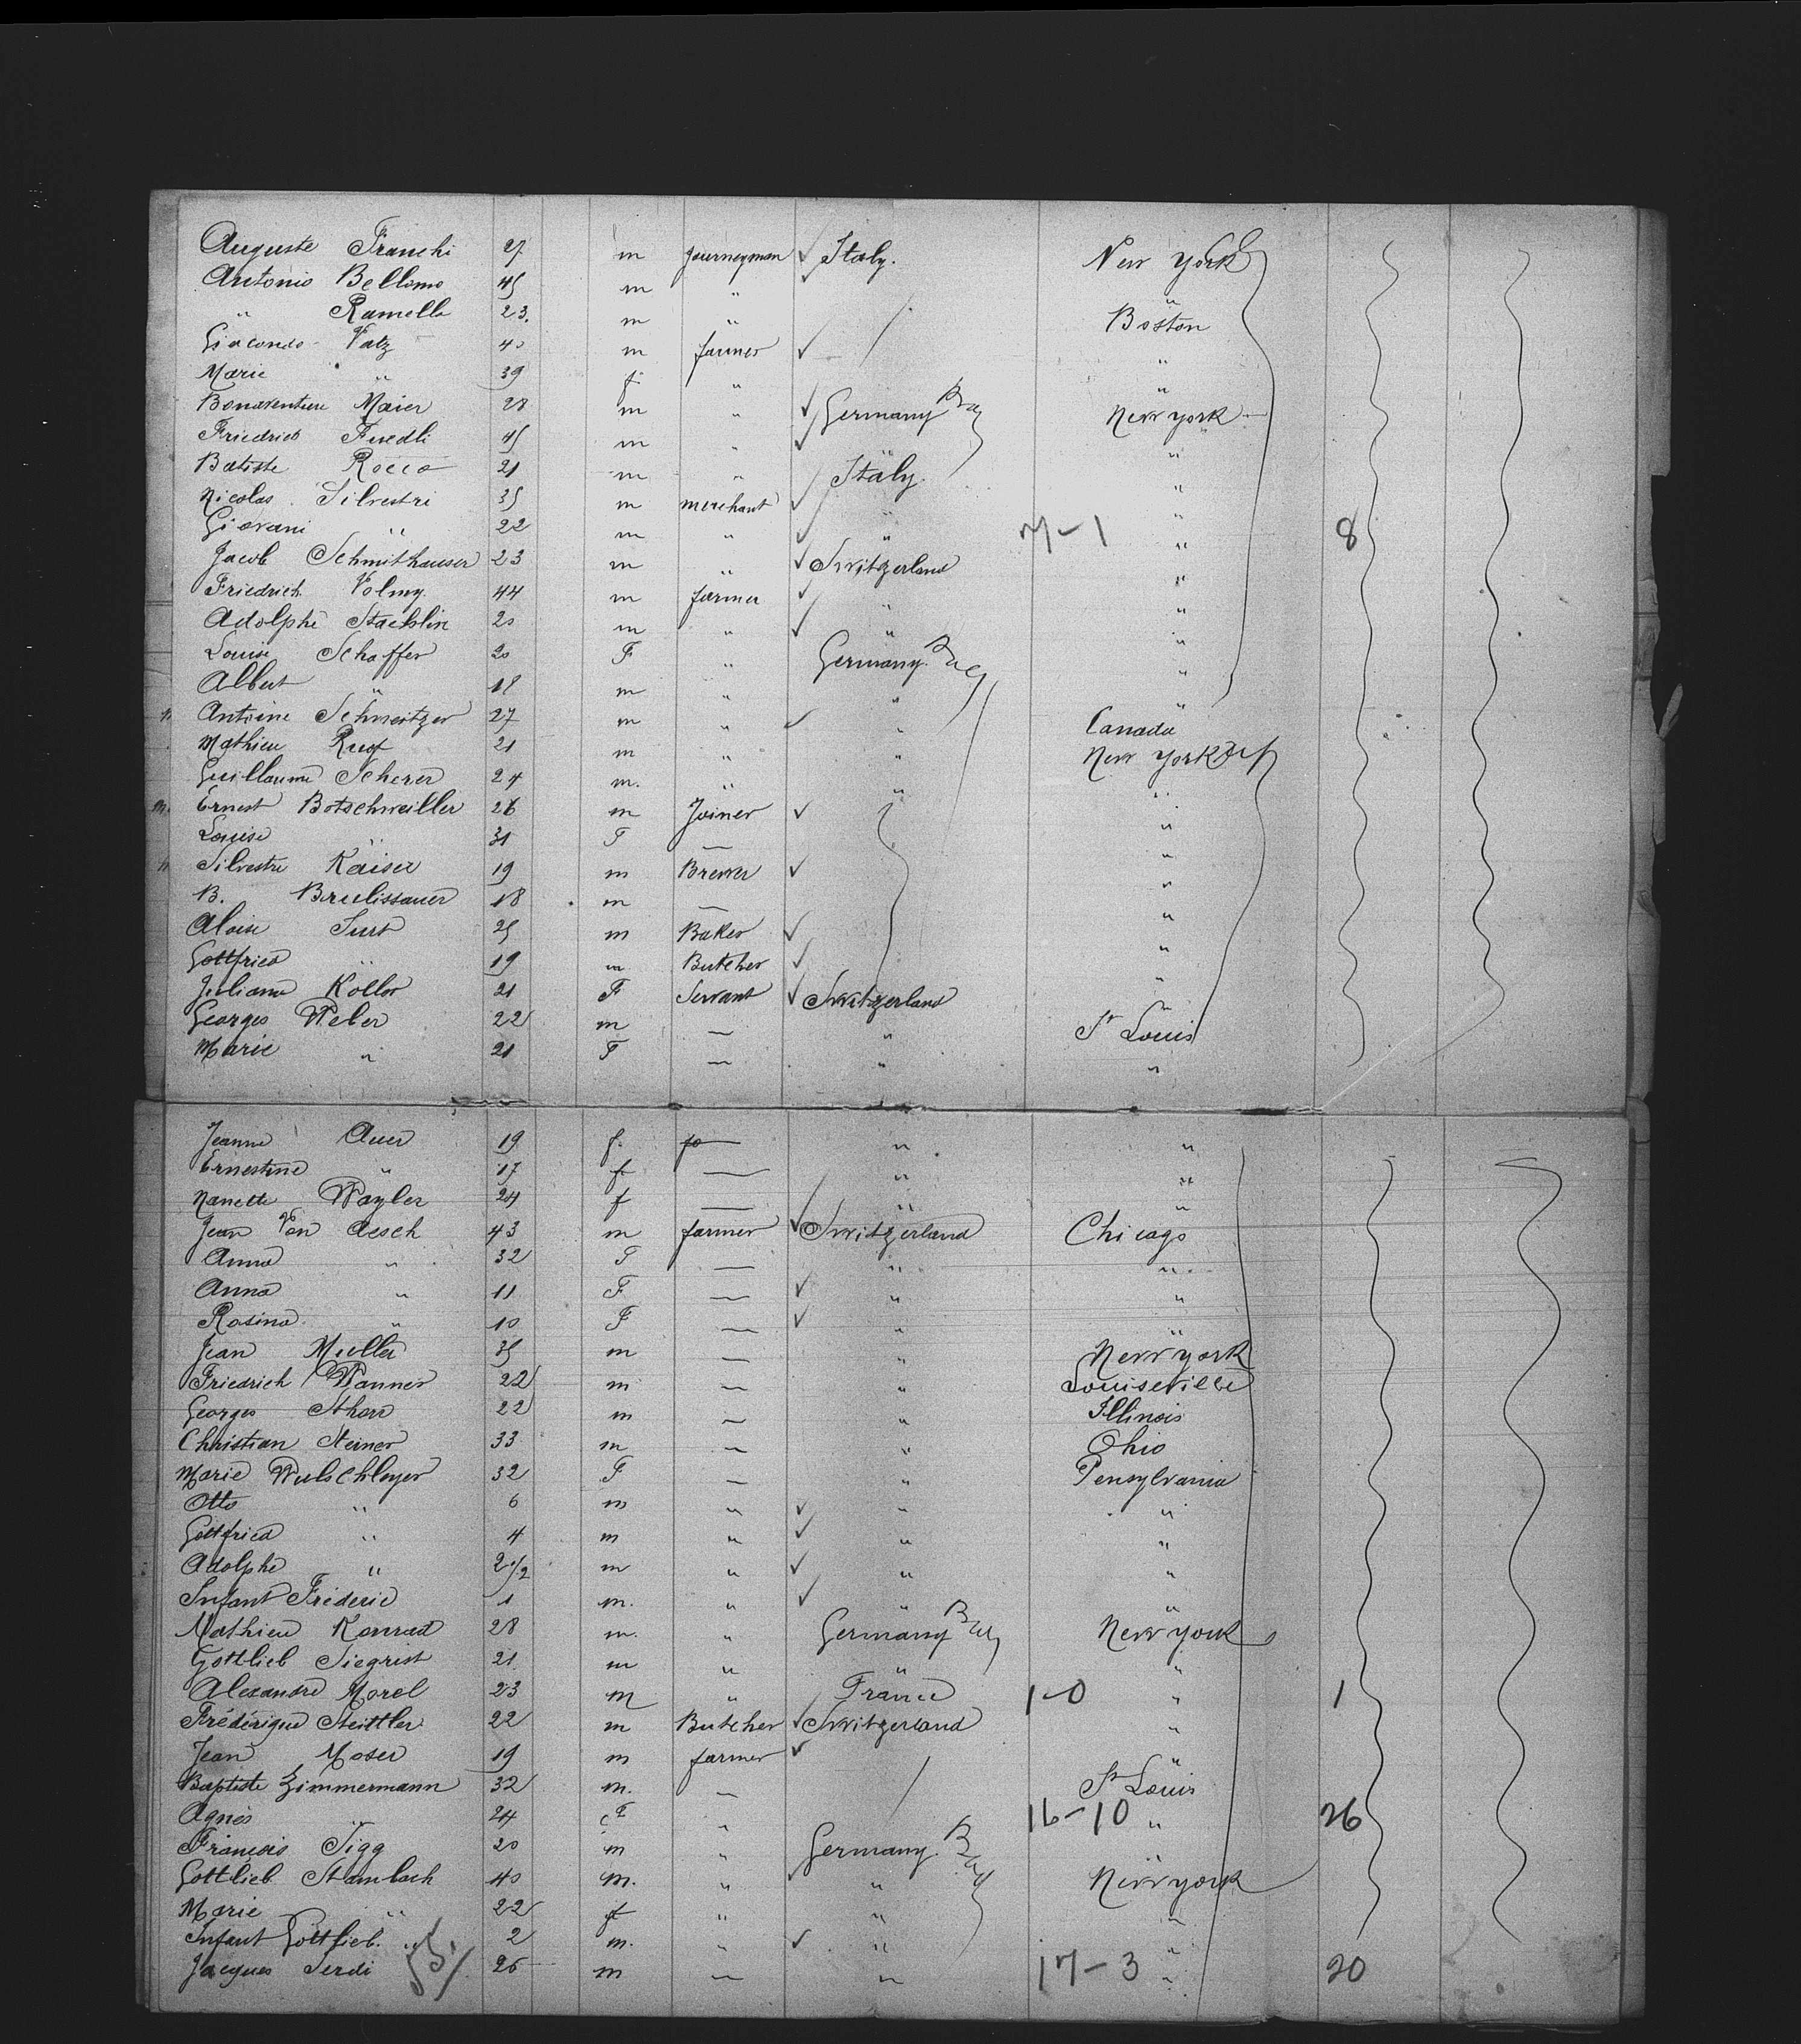 Auguste Franchi 27 m journeyman ✓ Italy. New York
Antonio Bellomo 45 m "
" Ramella 23. m " Boston "
Giocondo Vatz 40 m farmer ✓
Marie " 39 f " "
Bonaventure Maier 28 m " ✓ Germany New York "
Friedrich Fuedli 45 m " ✓
Batiste Rocco 21 m " Italy. "
Nicolas Silvestri 35 m merchant ✓ "
Giovani " 22 m " ✓ " 7-1 " 8
Jacob Schmithauser 23 m " ✓ Switzerland "
Friedrich Volmy 44 m farmer ✓ "
Adolphe Staehlin 20 m " ✓ " "
Louise Schaffer 20 F " Germany. "
Albert " 18 m " " "
Antoine Schweitzer 27 m " ✓ " Canada "
Mathieu Ruef 21 m " " New York
Guillaume Scherer 24 m. " "
Ernest Botschweiller 26 m Joiner ✓ "
Louise " 31 F — "
Silvestre Kaiser 19 m Brewer ✓ "
B. Brulissauer 18 m — "
Aloise Surt 25 m Baker ✓ "
Gottfried " 19 m Butcher ✓ "
Juliana Koller 21 F Servant ✓ Switzerland "
Georges Weber 22 m — " St Louis "
Marie " 21 F — " "
Jeanne Auer 19 f. fo " "
Ernestine " 17 f — " "
Nanette Wayler 24 f — " "
Jean Von Aesch 43 m farmer ✓ Switzerland Chicago
Anna " 32 F — " "
Anna " 11 F — ✓ " "
Rosina " 10 F — ✓ "
Jean Muller 35 m — " New York "
Friedrich Wanner 22 m — " Louiseville
Georges Shorr 22 m — " Illinois
Christian Steiner 33 m — " Ohio
Marie Wulschleyer 32 F — " Pensylvania
Otto " 6 m " ✓ " "
Gottfried " 4 m " ✓ " "
Adolphe " 2 1/2 m " ✓ " "
Infant Fréderic 1 m. " ✓ " "
Mathieu Konrad 28 m. " Germany New York
Gottlieb Siegrist 21 m " " "
Alexandre Morel 23 m " France 1-0 " 1
Frédérique Steittler 22 m Butcher ✓ Switzerland "
Jean Moser 19 m farmer ✓ "
Baptiste Zimmermann 32 m. — St Louis
Agnès " 24 F " 16-10 " 26
François Sigg 20 m " Germany. "
Gottlieb Stambach 40 m. " " New York
Marie " 22 f " " "
Infant Gottlieb. " 2 m. " ✓ " "
Jacques Serdi 26 m — " 17-3 " 20